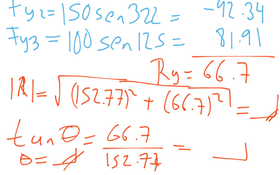 Fy2=150sen322 = -92.34
Fy3=100sen125= 81.91
Ry=66.7
|R|=√(152.77)²+(66.7)²=
tanθ=66.7/152.77=
θ=